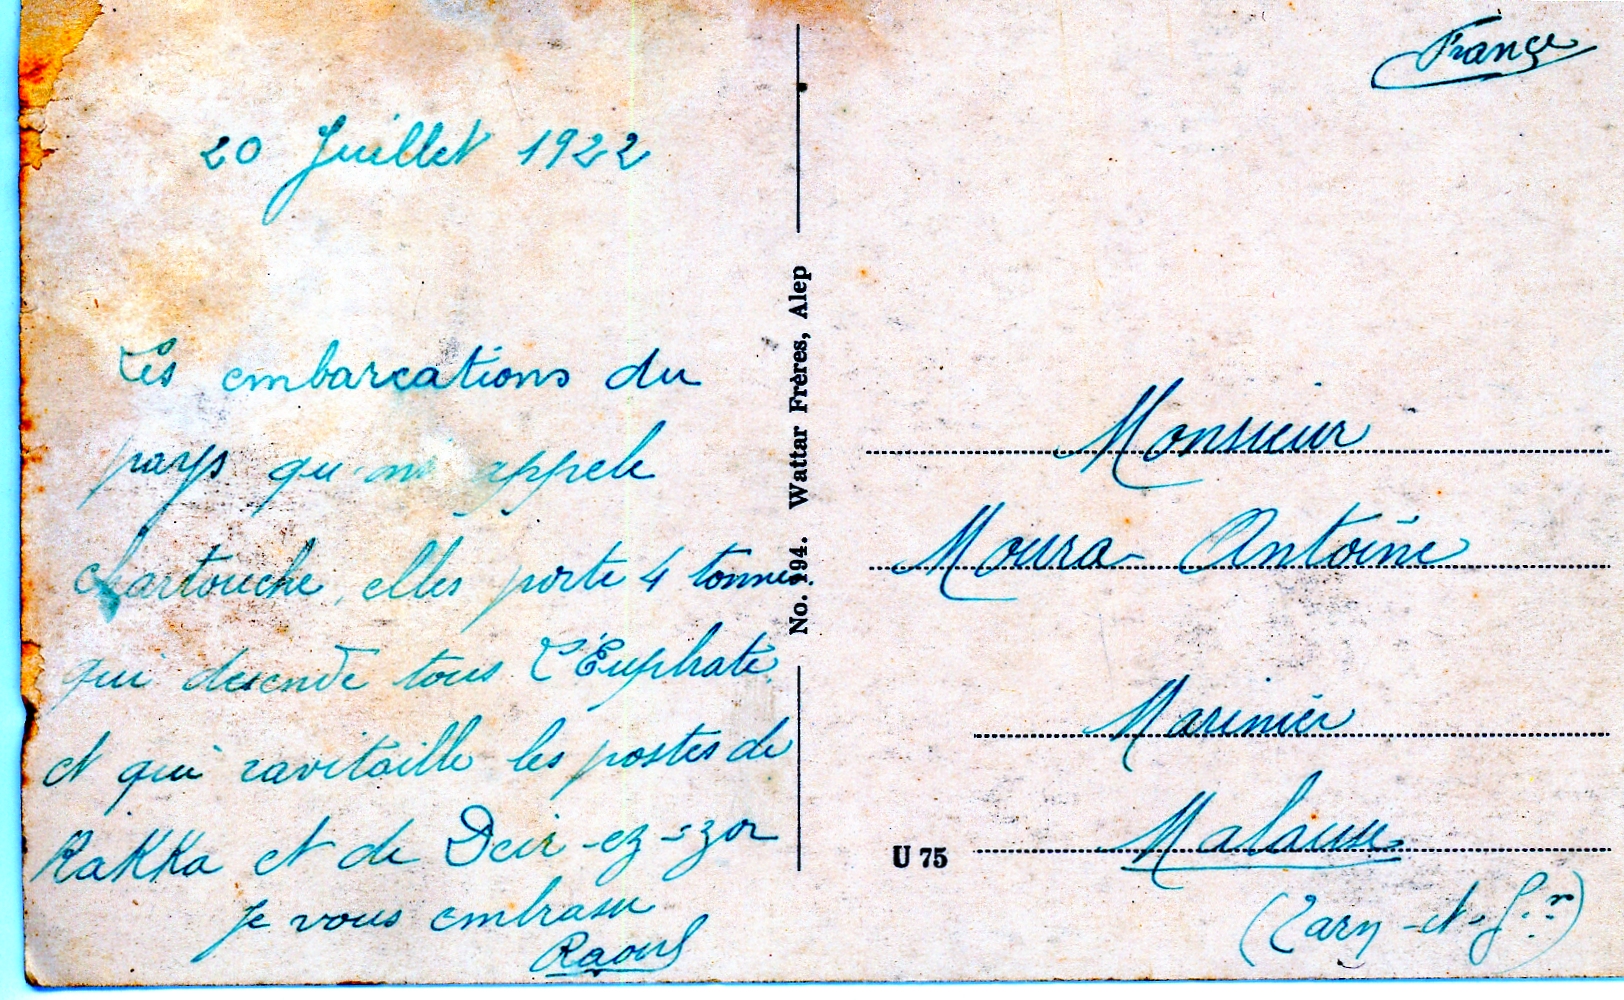 20 Juillet 1922
Les embarcations du
pays qui appele
chartouche, elles porte 4 tonnes.
qui desende tous l'Euphate.
et qui ravitaille les postes de
Rakka et de Deir-ez-zor
je vous embrasse
Raoul
No. 194. Wattar Frères, Alep
France
Monsieur
Moura Antoine
Marinier
Malause
U 75
(Tarn-et-G.r)